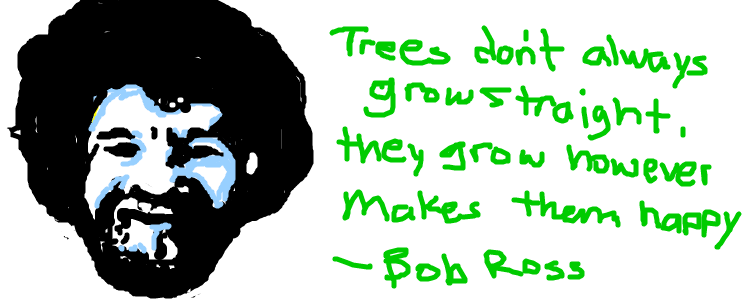 Trees don't always
grow straight,
they grow however
makes them happy
- Bob Ross